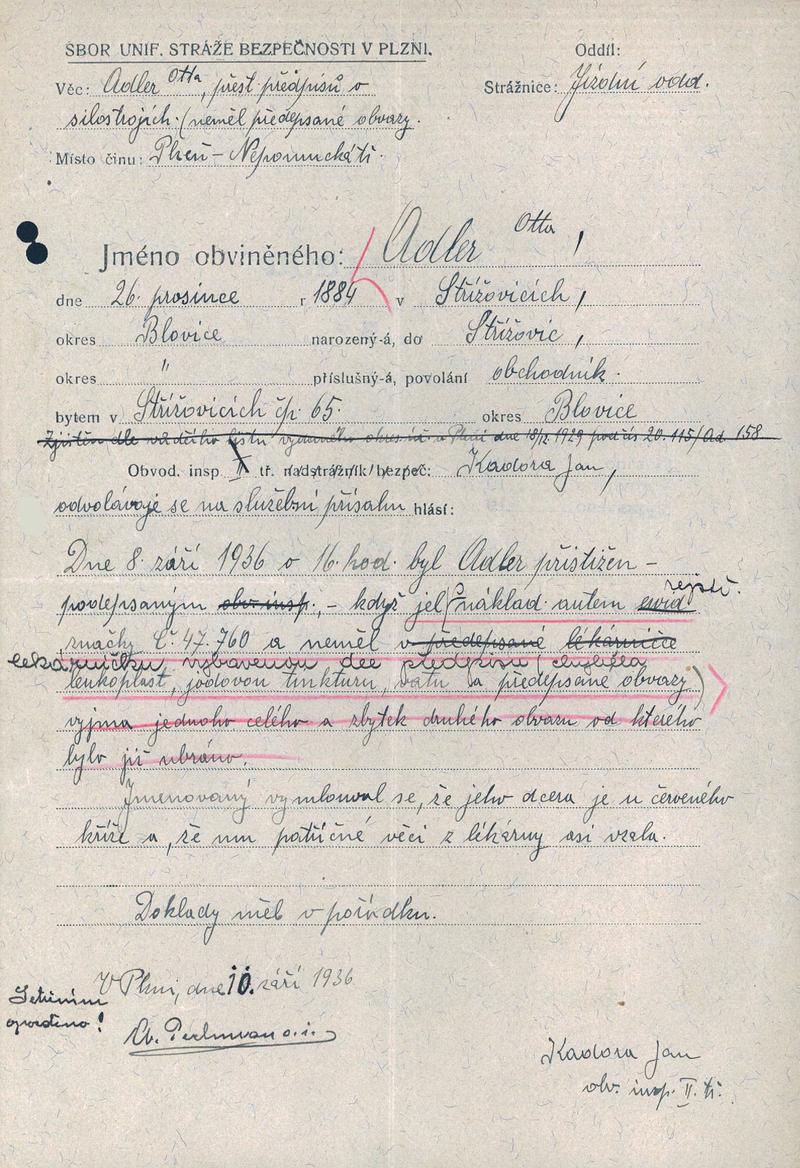 SBOR UNIF. STRÁŽE BEZPEČNOSTI V PLZNI.
Oddíl:
Věc: Adler Otta, přest předpisů o
Strážnice: Jízdní odd.
silostrojích. (neměl předepsané obvazy.
Místo činu: Plzeň – Nepomucká tř.
Jméno obviněného: Adler Otta,
dne 26. prosince r 1884 v Střížovicích,
okres Blovice narozený-á, do Střížovic,
okres " příslušný-á, povolání obchodník.
bytem v Střížovicích čp. 65. okres Blovice
Zjištěn dle vůdčího listu vydaného okres. úř. v Plzni dne 18/12 1929 pod čís 20.115/Ad. 158
Obvod. insp II tř. nadstrážník/bezpeč: Kadora Jan,
odvolávaje se na služební přísahu hlásí:
Dne 8. září 1936 o 16. hod. byl Adler přistižen –
podepsaným obv. insp., – když jel náklad. autem evid rejstř.
značky č. 47.760 a neměl v předepsané lékárničce
lekárničku vybavenou dle předpisu (chyběla
leukoplast, jodovou tinkturu, vatu a předepsané obvazy)
vyjma jednoho celého a zbytek druhého obvazu od kterého
bylo již ubráno.
Jmenovaný vymlouval se, že jeho dcera je u červeného
kříže a, že mu patřičné věci z lékárny asi vzala.
Doklady měl v pořádku.
V Plzni, dne 10. září 1936
Šetřením
Kadora Jan
obv. insp. II. tř.